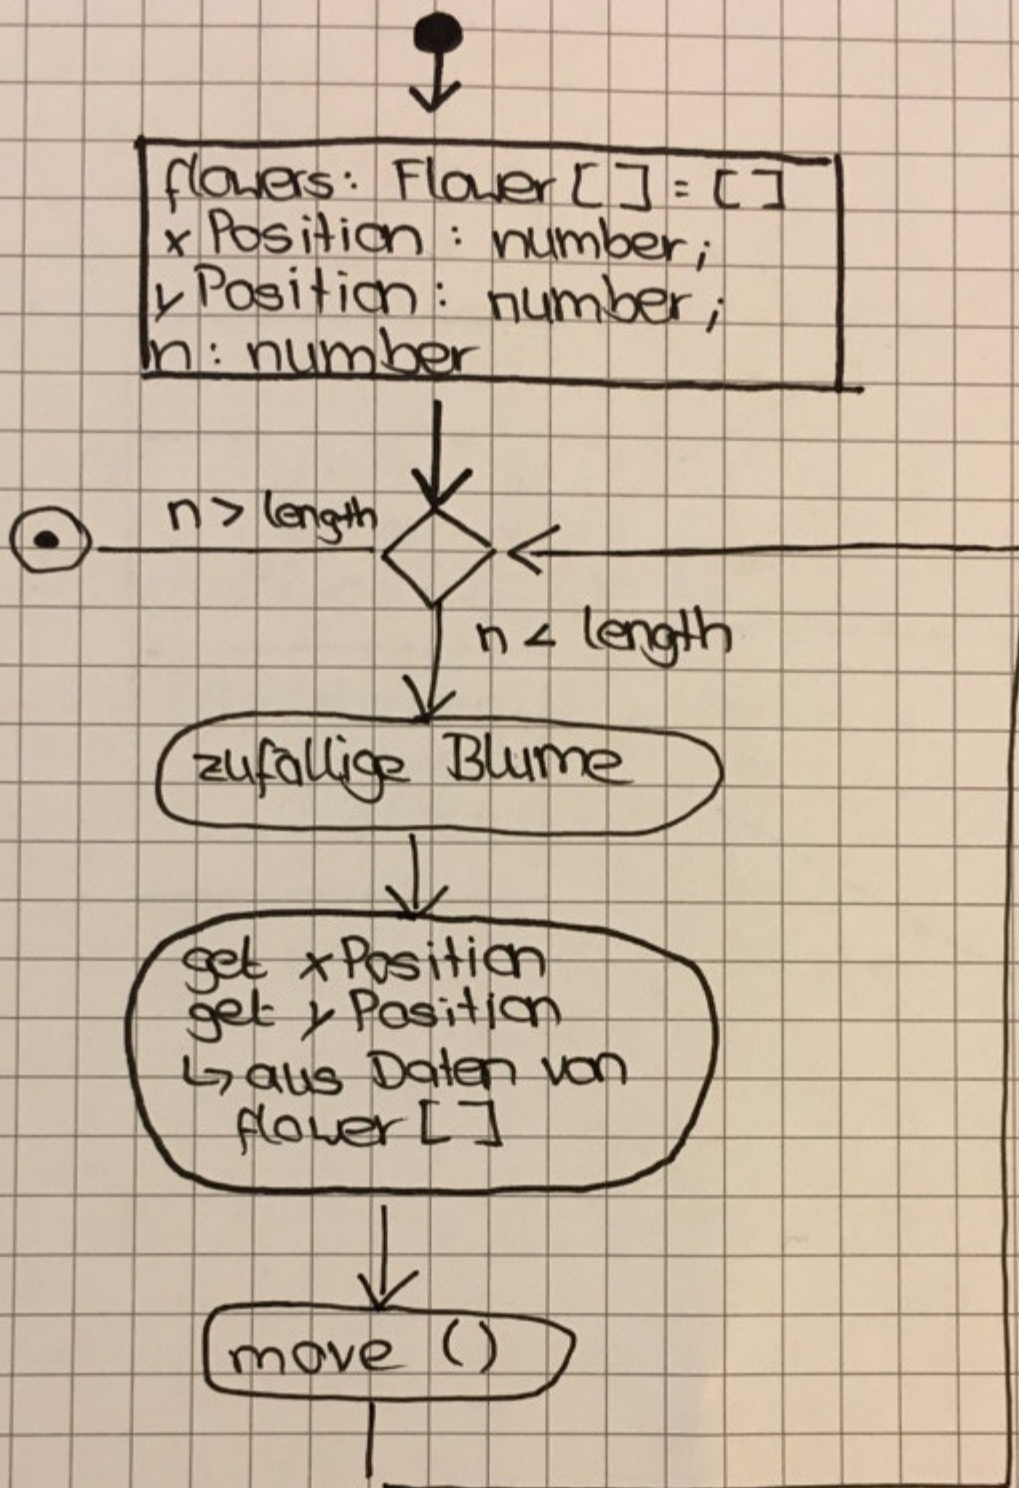 flowers: Flower [ ] = [ ]
x Position : number;
y Position : number;
n : number
n > length
n < length
zufällige Blume
get xPosition
get y Position
↳ aus Daten von
flower [ ]
move ()